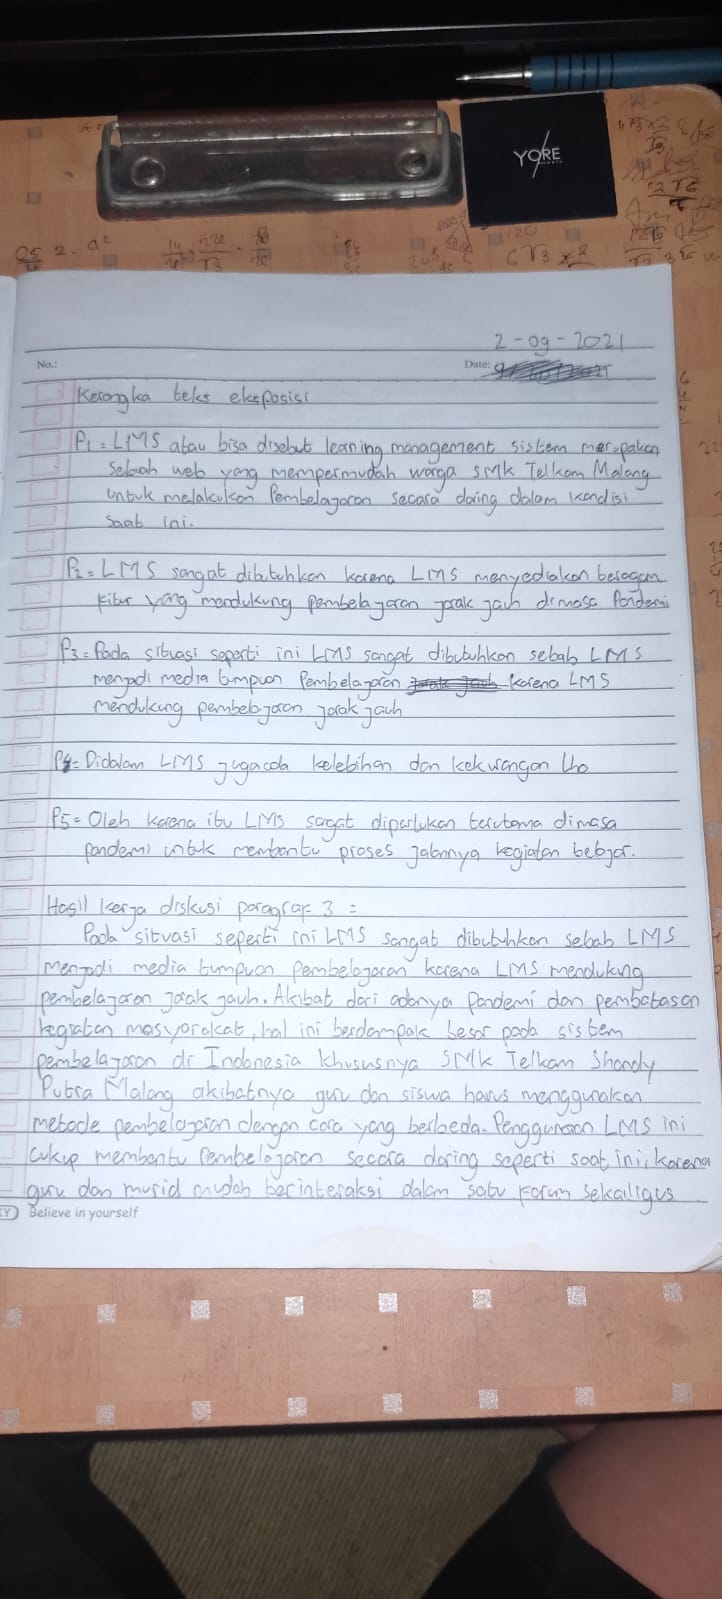 YORE
2-09-2021
No.:
Date:
Kerangka teks eksposisi
P1 = LMS atau bisa disebut learning management sistem merupakan
sebuah web yang mempermudah warga SMK Telkom Malang
untuk melakukan Pembelajaran secara daring dalam kondisi
saat ini.
P2 = LMS sangat dibutuhkan karena LMS menyediakan beragam
fitur yang mendukung pembelajaran jarak jauh dimasa Pandemi
P3 = Pada situasi seperti ini LMS sangat dibutuhkan sebab LMS
menjadi media tumpuan Pembelajaran karena LMS
mendukung pembelajaran jarak jauh
P4 = Didalam LMS juga ada kelebihan dan kekurangan lho
P5 = Oleh karena itu LMS sagat diperlukan terutama dimasa
pandemi untuk membantu proses jalannya kegiatan belajar.
Hasil kerja diskusi paragraf 3 =
Pada situasi seperti ini LMS sangat dibutuhkan sebab LMS
menjadi media tumpuan pembelajaran karena LMS mendukung
pembelajaran jarak jauh. Akibat dari adanya Pandemi dan pembatasan
kegiatan masyarakat, hal ini berdampak besar pada sistem
pembelajaran di Indonesia khususnya SMK Telkom Shandy
Putra Malang akibatnya guru dan siswa harus menggunakan
metode pembelajaran dengan cara yang berbeda. Penggunaan LMS ini
cukup membantu Pembelajaran secara daring seperti saat ini, karena
guru dan murid mudah berinteraksi dalam satu forum sekaligus
Believe in yourself